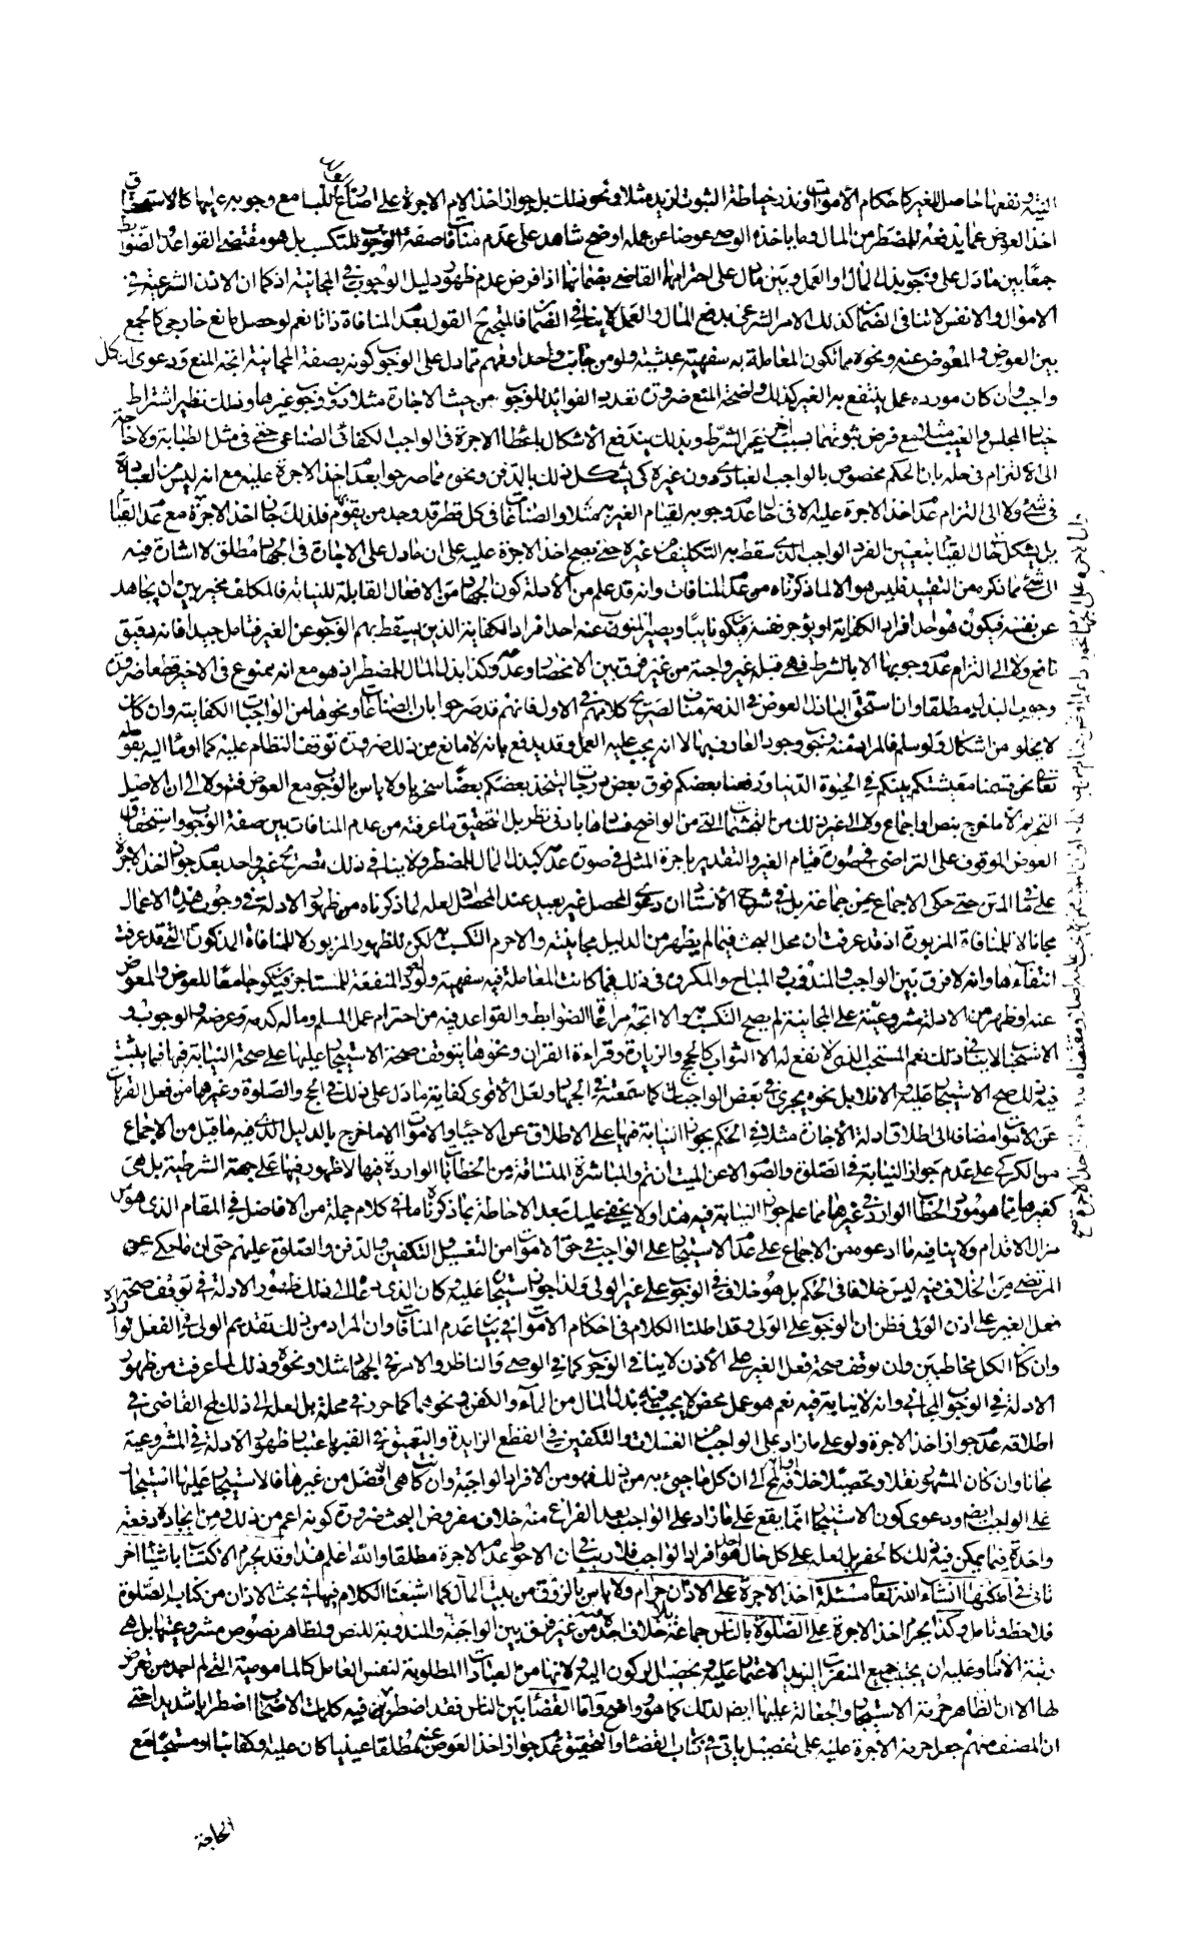 اليه ونفعها حاصل للغير كاحكام الأموات ونذر خياطة الثوب لزيد مثلا ونحو ذلك بل جواز اخذ الام الاجرة على ارضاع اللبا مع وجوبه عليها كالاستحقاق
اخذ العوض عما يدفعه للمضطر من المال وما ياخذه الوصي عوضا عن عمله اوضح شاهد على عدم منافاة صفة الوجوب للتكسب بل هو مقتضى القواعد الضوابط
جمعا بين ما دل على وجوب بذل المال او العمل وبين ما دل على احترامهما القاضي بضمانهما اذا فرض عدم ظهور دليل الوجوب في المجانية اذ كما ان الاذن الشرعية في
الاموال والانفس لا تنافي الضمان كذلك الامر الشرعي بدفع المال والعمل لا ينافي الضمان فالمتجه القول بعدم المنافاة ذاتا نعم لو حصل مانع خارجي كالجمع
بين العوض والمعوض عنه ونحوه مما تكون المعاملة به سفهية عبثية ولو من جانب واحد او فهم مما دل على الوجوب كونه بصفة المجانية اتجه المنع ودعوى ان كل
واجب وان كان مورده عمل ينتفع به الغير كذلك واضحة المنع ضرورة تعدد الفوائد للوجوب من حيث الاجارة مثلا ووجوب غيرها وذلك نظير اشتراط
خيار المجلس والغبن مثلا مع فرض ثبوتهما بسبب اخر غير الشرط وبذلك يندفع الأشكال باعطاء الاجرة في الواجب الكفائي الصناعي حتى في مثل الطبابة ولا حاجة
الى الالتزام في حله بان الحكم مخصوص بالواجب العبادي دون غيره كي يشكل ذلك بالدفن ونحوه مما صرحوا بعدم اخذ الاجرة عليه مع انه ليس من العبادة
في شيء ولا الى التزام عدم اخذ الاجرة عليه الا في حال عدم وجوبه لقيام الغير به مثلا والصناعات في كل قطر قد وجد من يقوم بها فلذلك جاز اخذ الاجرة مع عدم القيام
بل يشكل حال القيام بتعيين الفرد الواجب الذي سقط به التكليف من غيره حتى يصح اخذ الاجرة عليه على ان ما دل على الاجارة في الجهاد مطلق لا اشارة فيه
الى شيء مما ذكره من التقييد فليس هو الا لما ذكرناه من عدم المنافات وانه قد علم من الأدلة كون الجهاد من الافعال القابلة للنيابة فالمكلف مخير بين ان يجاهد
عن نفسه فيكون هو احد افراد الكفاية او يؤجر نفسه فيكون نايبا ويصير المنوب عنه احد افراد الكفاية الذين يسقط بهم الوجوب عن الغير فتامل جيدا فانه دقيق
نافع ولا الى التزام عدم وجوبها الا بالشرط فهي قبله غير واجبة من غير فرق بين الانحصار وعدمه وكذا بذل المال للمضطر اذ هو مع انه ممنوع في الاخير قطعا ضرورة
وجوب البذل فيه مطلقا وان استحق الباذل العوض في الذمة مناف لصريح كلامهم في الاول فانهم قد صرحوا بان الصناعات ونحوها من الواجبات الكفاية وان كان
لا يخلو من اشكال ولو سلم فالمراد منه وجوب وجود العارف بها لا انه يجب عليه العمل وقد يدفع بانه لا مانع من ذلك ضرورة توقف النظام عليه كما اومأ اليه بقوله
تعالى نحن قسمنا معيشتكم بينكم في الحيوة الدنيا ورفعنا بعضكم فوق بعض درجات ليتخذ بعضكم بعضا سخريا ولا باس بالوجوب مع العوض فتم ولا الى ان الاصل
التحريم الا ما خرج بنص او اجماع ولا الى غير ذلك من التهجسات التي من الواضح فسادها بادنى نظر بل التحقيق ما عرفته من عدم المنافات بين صفة الوجوب واستحقاق
العوض الموقوف على التراضي في صورة قيام الغير والتقدير باجرة المثل في صورة عدمه كبذل المال للمضطر ولا ينافي ذلك تصريح غير واحد بعدم جواز اخذ الاجرة
على ما في المتن حتى حكى الاجماع عن جماعة بل في شرح الأستاد ان دعوى المحصل غير بعيد عند المحصل لعله لما ذكرناه من ظهور الادلة في وجوب هذه الاعمال
مجانا لا للمنافاة المزبورة اذ قد عرفت ان محل البحث فيما لم يظهر من الدليل مجانيته والا حرم التكسب به لكن للظهور المزبور لا للمنافاة المذكورة التي قد عرفت
انتفاءها وانه لا فرق بين الواجب والمندوب والمباح والمكروه في ذلك فما كانت المعاملة فيه سفهية ولعود المنفعة للمستاجر فيكون جامعا للعوض والمعوض
عنه او ظهر من الادلة مشروعيته على المجانية لم يصح التكسب به والا اتجه مراعاة الضوابط والقواعد فيه من احترام عمل المسلم وماله كدمه وعرضه والوجوب و
الاستحباب لا ينافي ذلك نعم المستحب الذي لا نفع له الا الثواب كالحج والزيارة وقراءة القران ونحوها يتوقف صحة الاستيجار عليها على صحة النيابة فيها فما يثبت
فيه ذلك صح الاستيجار عليه والا فلا بل نحوه يجري في بعض الواجبات كما سمعته في الجهاد ولعل الاقوى كفاية ما دل على ذلك في الحج والصلوة وغيرهما من فعل القربات
عن الاموات مضافا الى اطلاق ادلة الاجارة مثلا في الحكم بجواز النيابة فيها على الاطلاق عن الاحياء والاموات الا ما خرج بالدليل الذي فيه ما قيل من الاجماع
من الكركي على عدم جواز النيابة في الصلوة والصوم الا عن الميت ان تم والمباشرة المنساقة من الخطابات الواردة فيها لا ظهور فيها على جهة الشرطية بل هي
كغيرها مما هو مورد الخطاب الوارد في غيرها مما علم جواز النيابة فيه هذا ولا يخفى عليك بعد الاحاطة بما ذكرناه ما في كلام جملة من الافاضل في المقام الذي هو من
مزال الاقدام ولا ينافيه ما ادعوه من الاجماع على عدم الاستيجار على الواجب في حق الاموات من التغسيل والتكفين والدفن والصلوة عليهم حتى ان ما حكي عن
المرتضى من الخلاف فيه ليس خلافا في الحكم بل هو خلاف في الوجوب على غير الولي ولذا جوز استيجاره عليه وكان الذي دعاه الى ذلك ظهور الادلة في توقف صحة
فعل الغير على اذن الولي فظن ان الوجوب على الولي وقد اطلنا الكلام في احكام الاموات في بيان عدم المنافات وان المراد من ذلك تقديم الولي في الفعل لو اراده
وان كان الكل مخاطبين وان توقف صحة فعل الغير على الأذن لا ينافي الوجوب كما في الوصي والناظر والامر في الجهاد مثلا ونحوه وذلك لما عرفت من ظهور
الادلة في الوجوب المجاني وانه لا نيابة فيه نعم هو عمل محض لا يجب فيه بذل المال من الماء والكفن ونحوهما كما حرر في محله بل لعله الى ذلك لمح القاضي في
اطلاقه عدم جواز اخذ الاجرة ولو على ما زاد على الواجب من الغسلات والتكفين في القطع الزايدة والتعميق في القبر باعتبار ظهور الادلة في المشروعية
مجانا وان كان المشهور نقلا وتحصيلا خلافه او لمح الى ان كل ما جيء به من ذلك فهو من الافراد الواجبة وان كانت هي افضل من غيرها فالاستيجار عليها استيجار
على الواجب ايضا ودعوى كون الاستيجار انما يقع على ما زاد على الواجب بعد الفراغ منه خلاف مفروض البحث ضرورة كونه اعم من ذلك ومن ايجاده دفعة
واحدة فيما يمكن فيه ذلك كالحفر بل لعله على كل حال هو احد افراد الواجب فلا ريب في ان الاحوط عدم الاجرة مطلقا والله اعلم هذا وقد يحرم الاكتساب باشياء اخر
تاتي في اماكنها انشاء الله تعالى مسئلة اخذ الاجرة على الاذان حرام ولا باس بالرزق من بيت المال كما اشبعنا الكلام فيها في بحث الاذان من كتاب الصلوة
فلاحظ وتامل وكذا يحرم اخذ الاجرة على الصلوة بالناس جماعة بلا خلاف اجده فيه من غير فرق بين الواجبة والمندوبة للنص ولظاهر نصوص مشروعيتها بل هي
رتبة الانبياء وعليه ان يجتنب جميع المنفرات اليه ليد الاعتماد عليه ويحصل الركون اليه ولانها من العبادات المطلوبة لنفس العامل كالماموميه التي لم اجد من تعرض
لها الا ان الظاهر حرمة الاستيجار والجعالة عليها ايضا لذلك كما هو واضح واما القضاء بين الناس فقد اضطربت فيه كلمات الاصحاب اضطرابا شديدا حتى
ان المصنف منهم جعل حرمة الاجرة عليه على تفصيل ياتي في كتاب القضاء والتحقيق عدم جواز اخذ العوض عنه مطلقا عينيا كان عليه او كفائيا او مستحبا مع
الحاجة